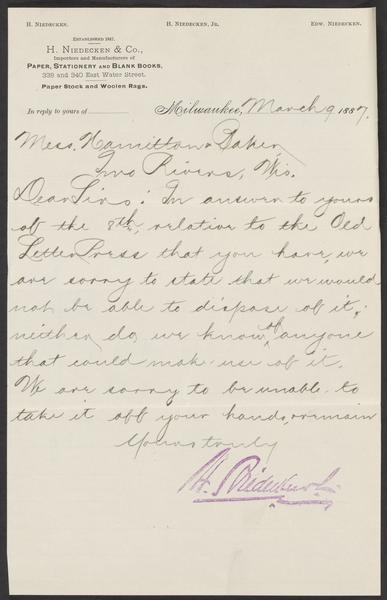 H. NIEDECKEN. H. NIEDECKEN, JR. EDW. NIEDECKEN.
ESTABLISHED 1847.
H. NIEDECKEN & CO.,
Importers and Manufacturers of
PAPER, STATIONERY AND BLANK BOOKS,
338 and 340 East Water Street.
Paper Stock and Woolen Rags.
In reply to yours of Milwaukee, March 9 1887.
Mess. Hamilton & Baker,
Two Rivers, Wis.
Dear Sirs: In answer to yours
of the 8th, relative to the Old
Letter Press that you have, we
are sorry to state that we would
not be able to dispose of it;
neither do we know of anyone
that could make use of it.
We are sorry to be unable to
take it off your hands, & remain
Yours truly
H. Niedecken